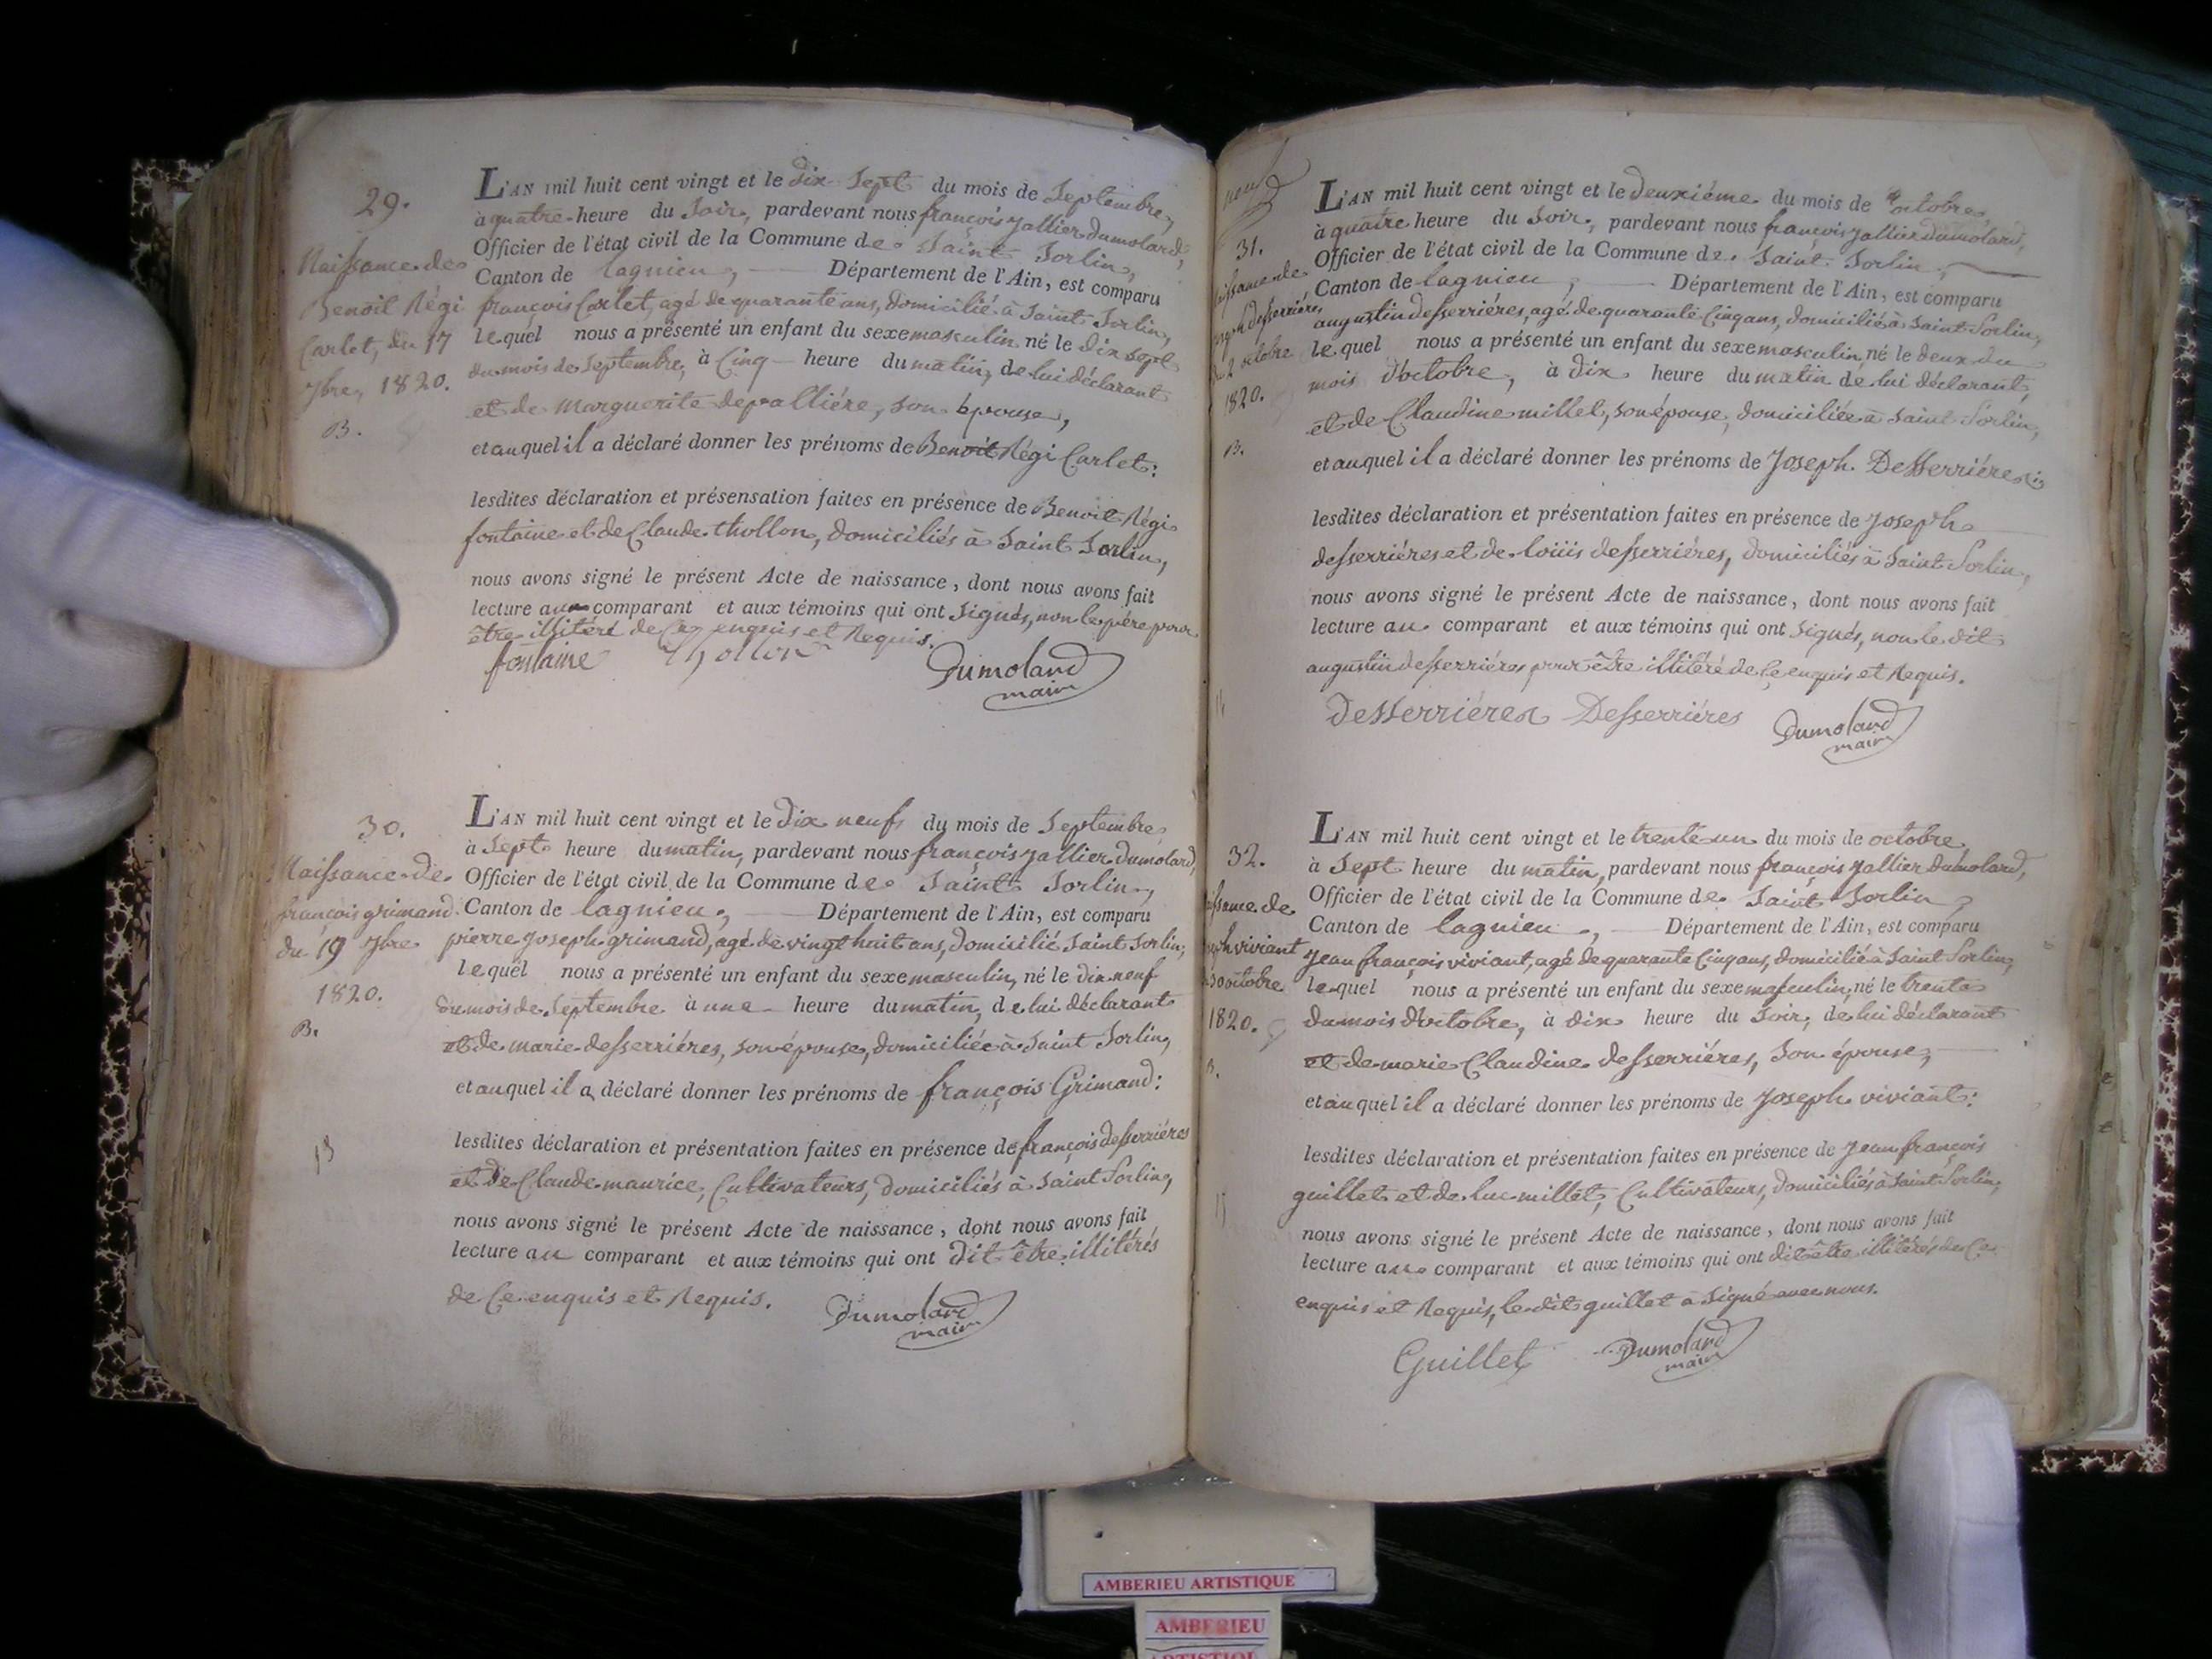 29.
Naissance de
Benoit Régi
Carlet, du 17
7bre, 1820.
B.
L'AN mil huit cent vingt et le dix sept du mois de Septembre,
à quatre heure du Soir, pardevant nous françois Jallier dumolard,
Officier de l'état civil de la Commune de Saint Sorlin,
Canton de lagnieu, Département de l'Ain, est comparu
françois Carlet, agé de quarante ans, domicilié à Saint Sorlin,
lequel nous a présenté un enfant du sexe masculin né le dix sept
du mois de Septembre, à Cinq heure du matin, de lui déclarant
et de Marguerite depalliére, son épouse,
et auquel il a déclaré donner les prénoms de Benoit Régi Carlet:
lesdites déclaration et présensation faites en présence de Benoit Régi
fontaine et de Claude thollon, domiciliés à Saint Sorlin,
nous avons signé le présent Acte de naissance, dont nous avons fait
lecture au comparant et aux témoins qui ont signés, non le pére pour
être illitéré de Ce enquis et Requis.
fontaine thollon Dumolard
maire
30.
Naissance de
françois grimand
du 19 7bre
1820.
B.
13
L'AN mil huit cent vingt et le dix neuf du mois de Septembre
à Sept heure du matin, pardevant nous françois Jallier dumolard,
Officier de l'état civil de la Commune de Saint Sorlin,
Canton de lagnieu, Département de l'Ain, est comparu
pierre Joseph grimand, agé de vingt huit ans, domicilié Saint Sorlin,
lequel nous a présenté un enfant du sexe masculin, né le dix neuf
du mois de Septembre à une heure du matin, de lui déclarant
et de marie desserriéres, son épouse, domiciliée à Saint Sorlin,
et auquel il a déclaré donner les prénoms de françois Grimand:
lesdites déclaration et présentation faites en présence de françois desserriéres
et de Claude maurice, Cultivateurs, domiciliés à Saint Sorlin,
nous avons signé le présent Acte de naissance, dont nous avons fait
lecture au comparant et aux témoins qui ont dit être illitérés
de Ce enquis et Requis. Dumolard
maire
31.
desserriéres
2 octobre
1820.
B.
L'AN mil huit cent vingt et le deuxiéme du mois de octobre,
à quatre heure du Soir, pardevant nous françois Jallier dumolard,
Officier de l'état civil de la Commune de Saint Sorlin,
Canton de lagnieu, Département de l'Ain, est comparu
augustin desserriéres, agé de quarante Cinq ans, domicilié à Saint Sorlin,
lequel nous a présenté un enfant du sexe masculin, né le deux du
mois d'octobre, à dix heure du matin de lui déclarant,
et de Claudine millet, son épouse, domiciliée à Saint Sorlin,
et auquel il a déclaré donner les prénoms de Joseph Desserriéres:
lesdites déclaration et présentation faites en présence de Joseph
desserriéres et de loüis desserriéres, domiciliés à Saint Sorlin,
nous avons signé le présent Acte de naissance, dont nous avons fait
lecture au comparant et aux témoins qui ont signés, non le dit
augustin desserriéres pour être illitéré de Ce enquis et Requis.
desserriéres Desserriéres Dumolard
maire
32.
viviant
30 octobre
1820.
B.
L'AN mil huit cent vingt et le trente un du mois de octobre
à Sept heure du matin, pardevant nous françois Jallier dumolard,
Officier de l'état civil de la Commune de Saint Sorlin,
Canton de lagnieu, Département de l'Ain, est comparu
Jean françois viviant, agé de quarante Cinq ans, domicilié à Saint Sorlin,
lequel nous a présenté un enfant du sexe masculin, né le trente
du mois d'octobre, à dix heure du Soir, de lui déclarant
et de marie Claudine desserriéres, Son épouse,
et auquel il a déclaré donner les prénoms de Joseph viviant:
lesdites déclaration et présentation faites en présence de Jean françois
guillet et de luc millet, Cultivateurs, domiciliés à Saint Sorlin,
nous avons signé le présent Acte de naissance, dont nous avons fait
lecture au comparant et aux témoins qui ont dit être illitérés de Ce
enquis et Requis, le dit guillet a signé avec nous.
Guillet Dumolard
maire
AMBERIEU ARTISTIQUE
AMBERIEU
ARTISTIQUE